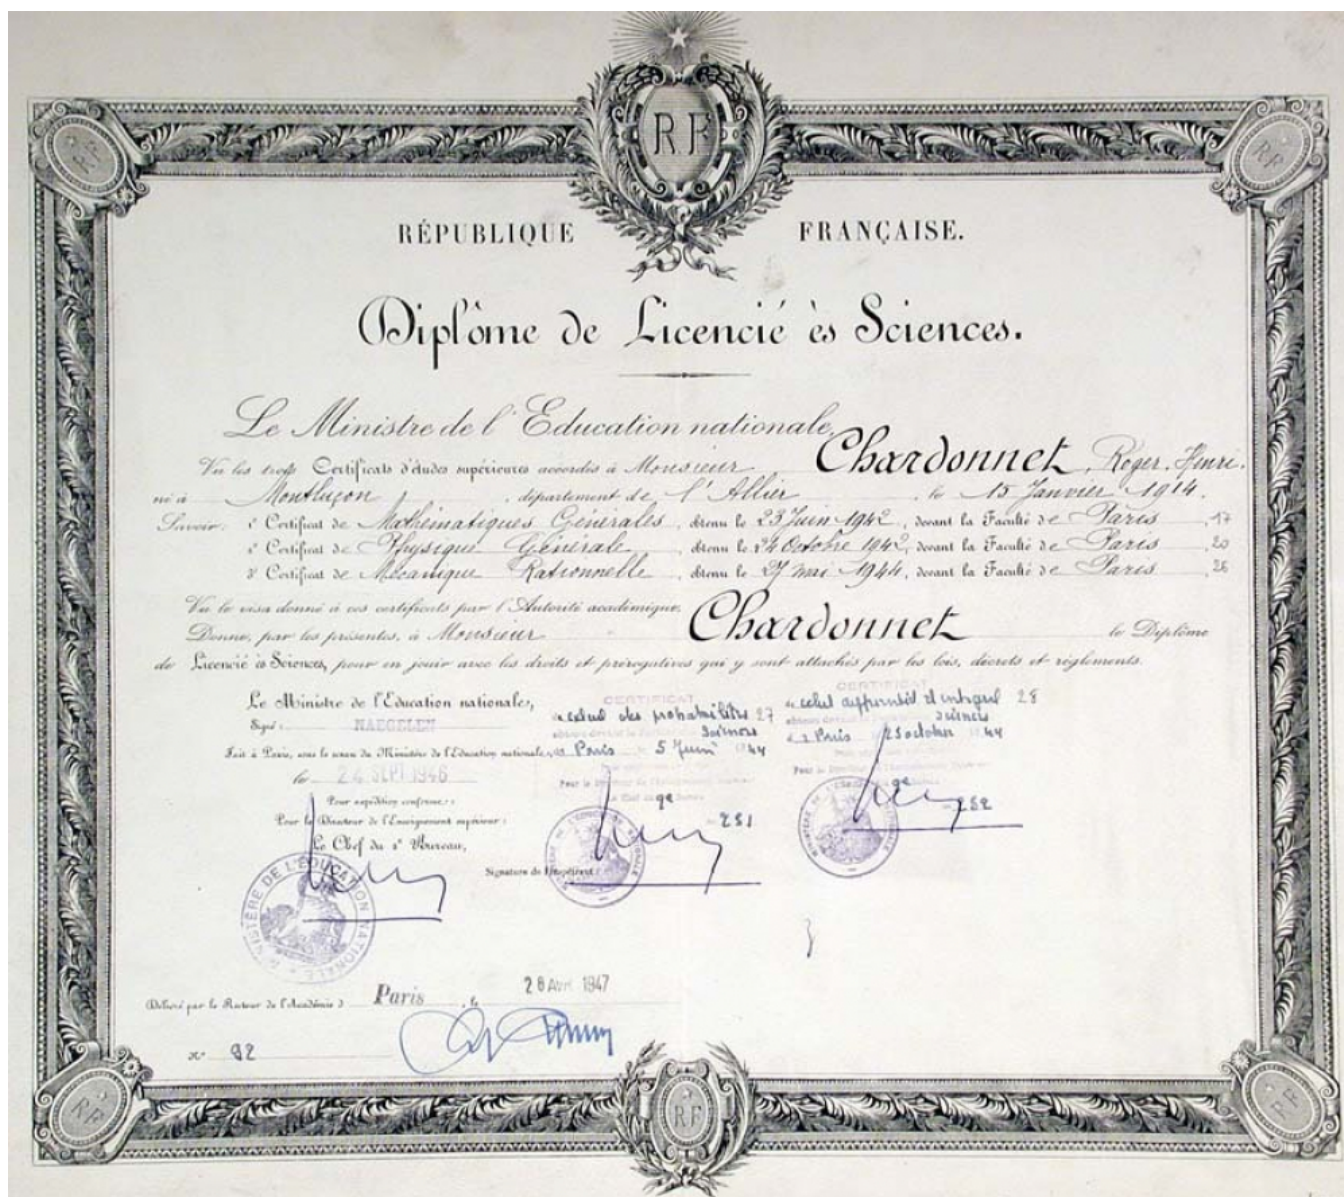 RF
RF
RF
RÉPUBLIQUE FRANÇAISE.
Diplôme de Licencié ès Sciences.
Le Ministre de l'Education nationale,
Vu les trois Certificats d'études supérieures accordés à Monsieur Chardonnet, Roger, Henri.
né à Montluçon, département de l'Allier, le 15 Janvier 1914.
Savoir: 1° Certificat de Mathématiques Générales, obtenu le 23 Juin 1942, devant la Faculté de Paris, 17
2° Certificat de Physique Générale, obtenu le 24 Octobre 1942, devant la Faculté de Paris, 20
3° Certificat de Mécanique Rationnelle, obtenu le 27 mai 1944, devant la Faculté de Paris, 26
Vu le visa donné à ces certificats par l'Autorité académique.
Donne, par les présentes, à Monsieur Chardonnet le Diplôme
de Licencié ès Sciences, pour en jouir avec les droits et prérogatives qui y sont attachés par les lois, décrets et règlements.
Le Ministre de l'Education nationale,
Signé: NAEGELEN
Fait à Paris, sous le sceau du Ministère de l'Education nationale,
le 24 SEPT 1946
Pour expédition conforme:
Pour le Directeur de l'Enseignement supérieur:
Le Chef du Bureau,
MINISTÈRE DE L'ÉDUCATION NATIONALE
CERTIFICAT
de calcul des probabilités 27
Sciences
Paris 5 Juin 1944
281
Signature de l'impétrant:
CERTIFICAT
de calcul différentiel et intégral 28
Sciences
Paris 25 octobre 1944
282
Délivré par le Recteur de l'Académie d Paris, le 28 Avril 1947
N° 92
RF
RF
RF